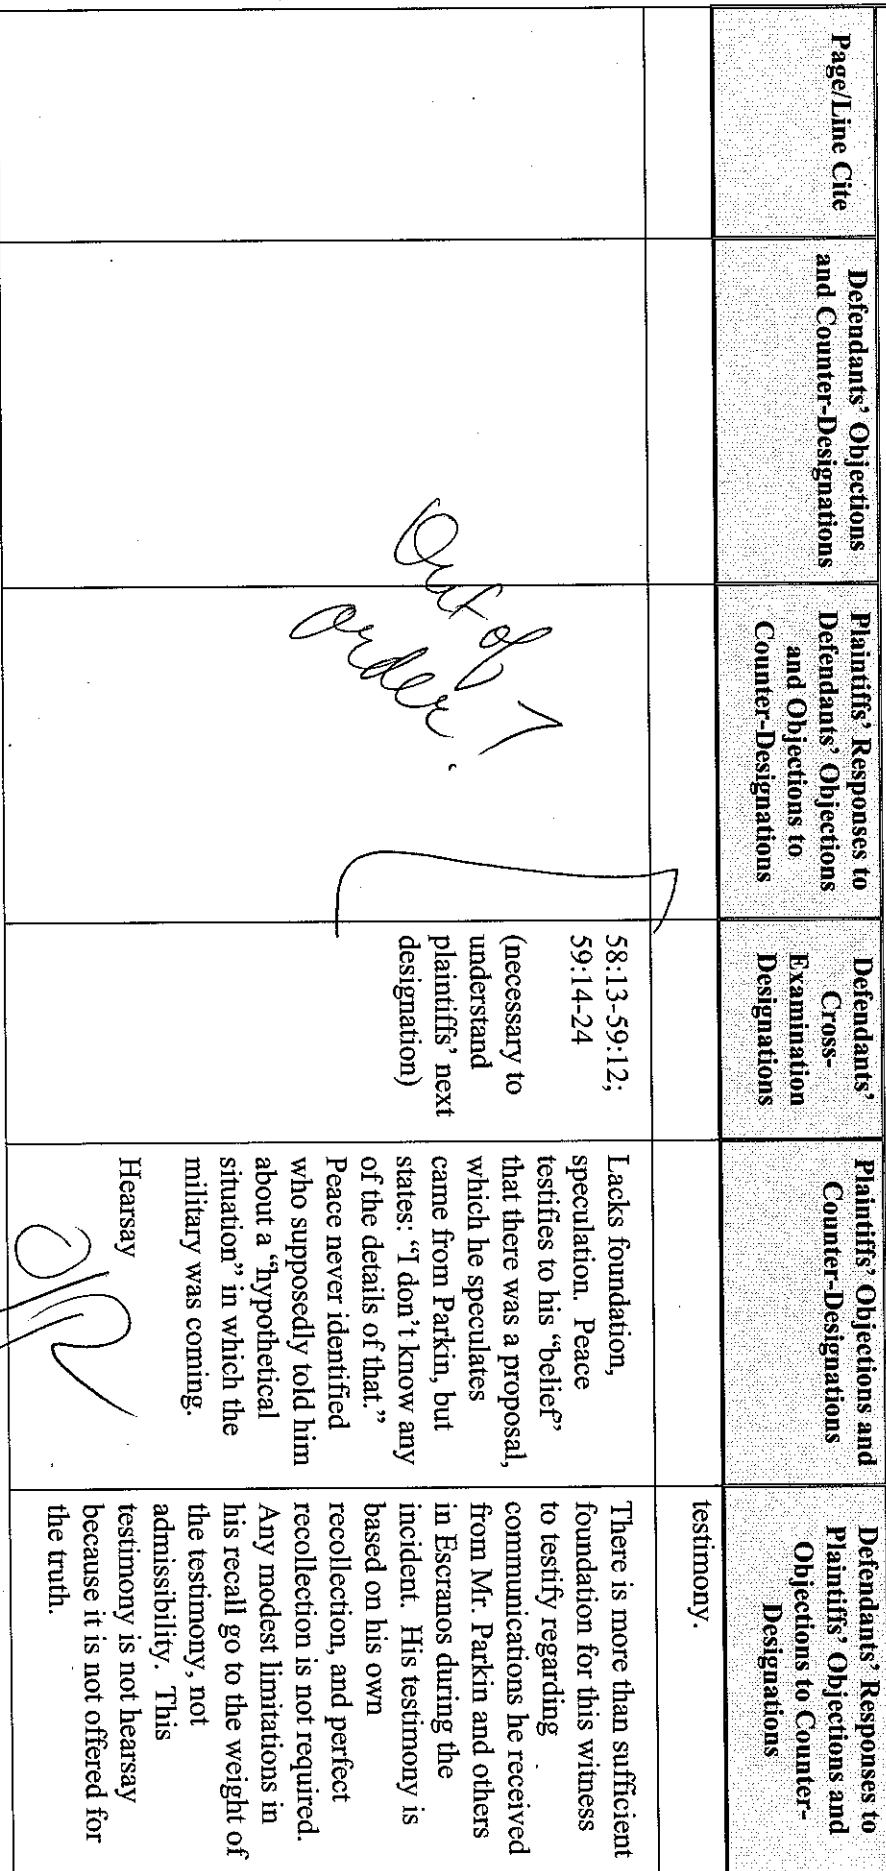 Page/Line Cite
Defendants' Objections
and Counter-Designations
Plaintiffs' Responses to
Defendants' Objections
and Objections to
Counter-Designations
Defendants'
Cross-
Examination
Designations
Plaintiffs' Objections and
Counter-Designations
Defendants' Responses to
Plaintiffs' Objections and
Objections to Counter-
Designations
testimony.
Out of
order!
58:13-59:12;
59:14-24
(necessary to
understand
plaintiffs' next
designation)
Lacks foundation,
speculation. Peace
testifies to his "belief"
that there was a proposal,
which he speculates
came from Parkin, but
states: "I don't know any
of the details of that."
Peace never identified
who supposedly told him
about a "hypothetical
situation" in which the
military was coming.
Hearsay
There is more than sufficient
foundation for this witness
to testify regarding
communications he received
from Mr. Parkin and others
in Escranos during the
incident. His testimony is
based on his own
recollection, and perfect
recollection is not required.
Any modest limitations in
his recall go to the weight of
the testimony, not
admissibility. This
testimony is not hearsay
because it is not offered for
the truth.